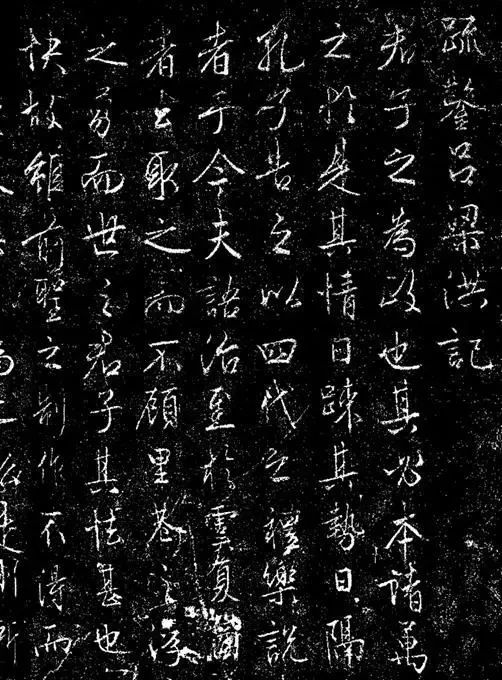 疏鑿呂梁洪記
君子之為政也其必本諸萬
之於是其情日踈其勢日隔
孔子告之以四代之禮樂說
者乎今夫語治至於虞夏商
者取之而不顧里巷之浮
之而世之君子其怯甚也
快故雖前聖之制作不得而